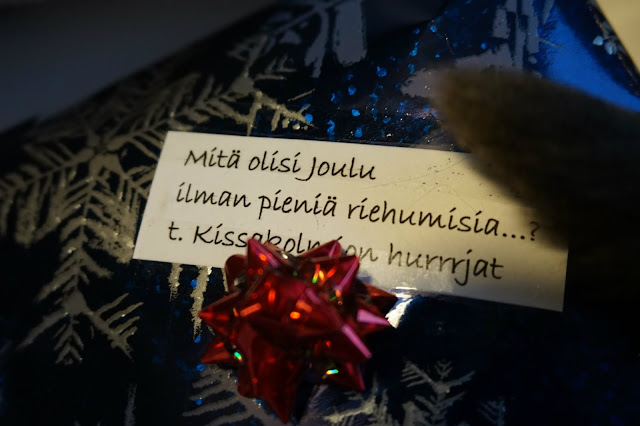 Mitä olisi Joulu
ilman pieniä riehumisia...?
t. hurrrjat